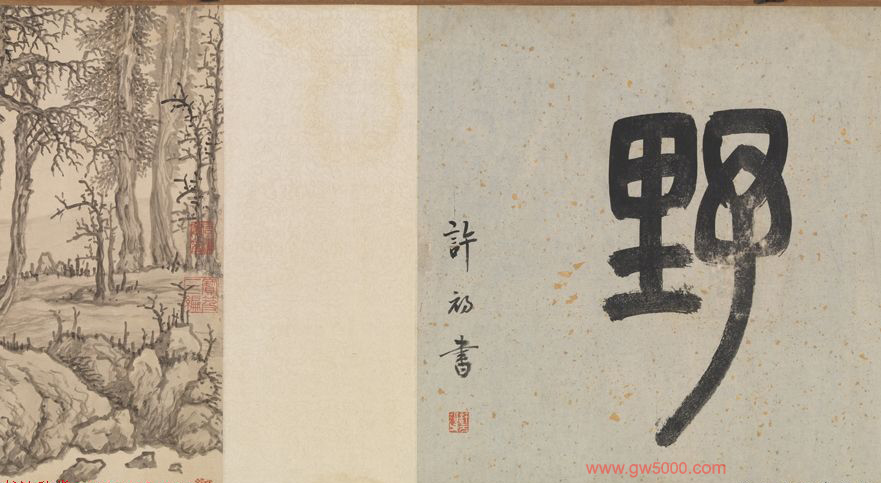 野
許初書
www.gw5000.com